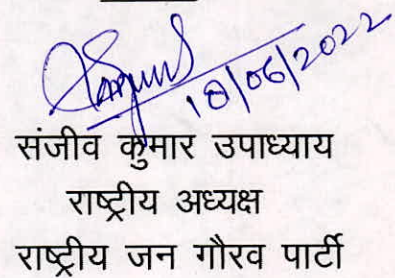 18/06/2022
संजीव कुमार उपाध्याय
राष्ट्रीय अध्यक्ष
राष्ट्रीय जन गौरव पार्टी